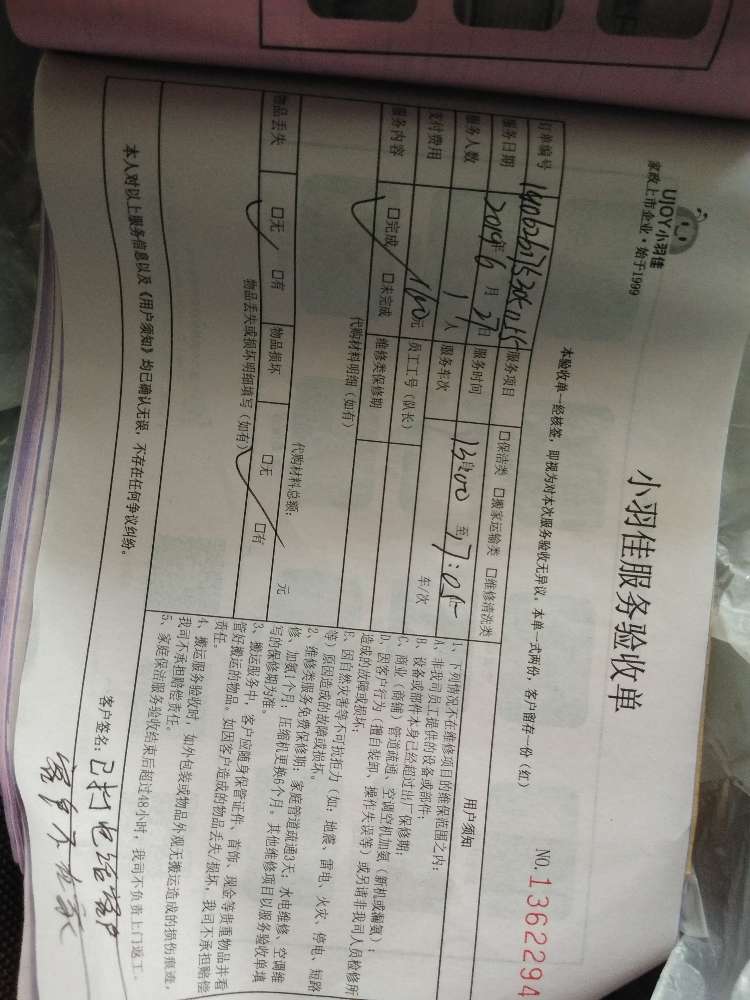 UJOY小羽佳
家政上市企业·始于1999
小羽佳服务验收单
NO.1362294
本验收单一经核签，即视为对本次服务验收无异议。本单一式两份，客户留存一份（红）
订单编号
服务项目 □保洁类 □搬家运输类 □维修清洗类
服务日期 2019年6月27日 服务时间 13:00 至 17:05
服务人数 1人 服务车次 车/次
支付费用 140元 员工工号（队长）
服务内容 □完成 □未完成 维修类保修期
代购材料明细（如有）
代购材料总额： 元
物品丢失 □无 □有 物品损坏 □无 □有
物品丢失或损坏明细填写（如有）
用户须知
1、下列情况不在维修项目的维保范围之内：
A、非我司员工提供的设备或部件；
B、设备或部件本身已经超过出厂保修期；
C、商业（商铺）管道疏通、空调空机加氨（新机或漏氨）；
D、因客户行为（擅自装卸、操作失误等）或另请非我司人员检修所
造成的故障或损坏；
E、因自然灾害等不可抗拒力（如：地震、雷电、火灾、停电、短路
等）原因造成的故障或损坏。
2、维修类服务免费保修期：家庭管道疏通3天；水电维修、空调维
修、加氨1个月，压缩机更换6个月。其他维修项目以服务验收单填
写的保修期为准。
3、搬运服务中，客户应随身保管证件、首饰、现金等贵重物品并看
管好搬运的物品。如因客户造成的物品丢失/损坏，我司不承担赔偿
责任。
4、搬运服务验收时，如外包装或物品外观无搬运造成的损伤痕迹，
我司不承担赔偿责任。
5、家庭保洁服务验收结束后超过48小时，我司不负责上门返工。
本人对以上服务信息以及《用户须知》均已确认无误，不存在任何争议纠纷。
客户签名：已打电话给客户
客户不在家